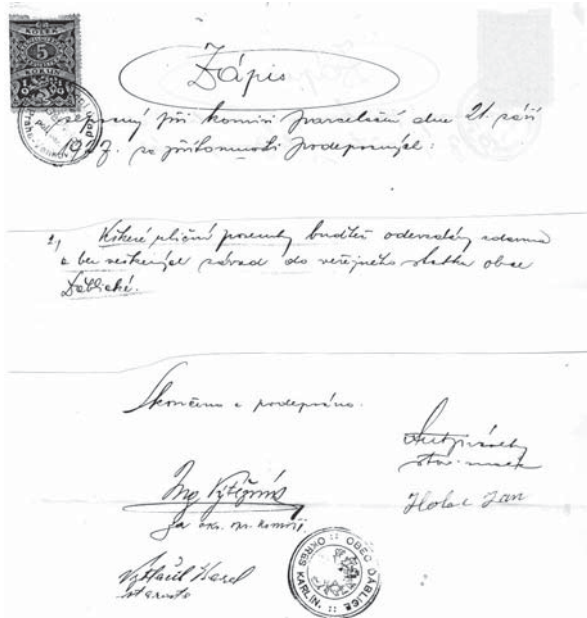 KOLEK
5
KORUN
Zápis
sepsaný při komisi parcelační dne 21. září
1927. za přítomnosti podepsaných:
2, Veškeré uliční pozemky buďtež odevzdány zdarma
a bez veškerých závad do veřejného statku obce
Ďáblické.
Skončeno a podepsáno.
stav.
Ing
Holec Jan
za okr.
Karel
starosta
OBEC ĎÁBLICE :: OKRES KARLÍN. ::